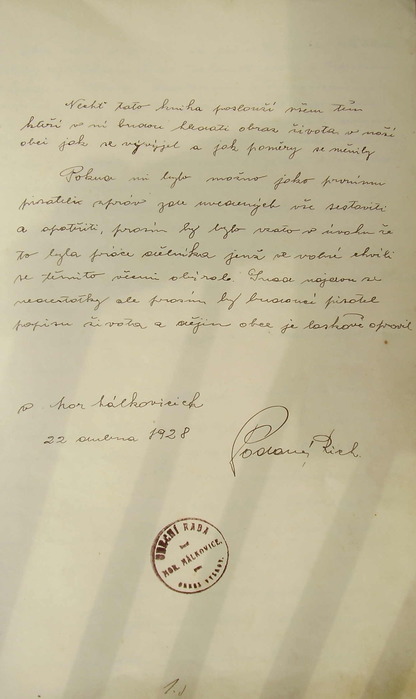 Nechť tato kniha poslouží všem těm
kteří v ní budou hledati obraz života v naší
obci jak se vyvýjel a jak poměry se měnily
Pokud mi bylo možno jako prvnímu
pisateli zpráv zde uvedených vše sestaviti
a opatřiti, prosím by bylo vzato v úvahu že
to byla práce dělníka jenž ve volné chvíli
se těmito věcmi obíral. Snad najdou se
nedostatky ale prosím by budoucí pisatel
popisu života a dějin obce je laskavě opravil
v Mor. Málkovicích
22 dubna 1928
Podaný Rich.
OBECNÍ RADA
MOR. MÁLKOVICE.
OKRES VYŠKOV.
1.